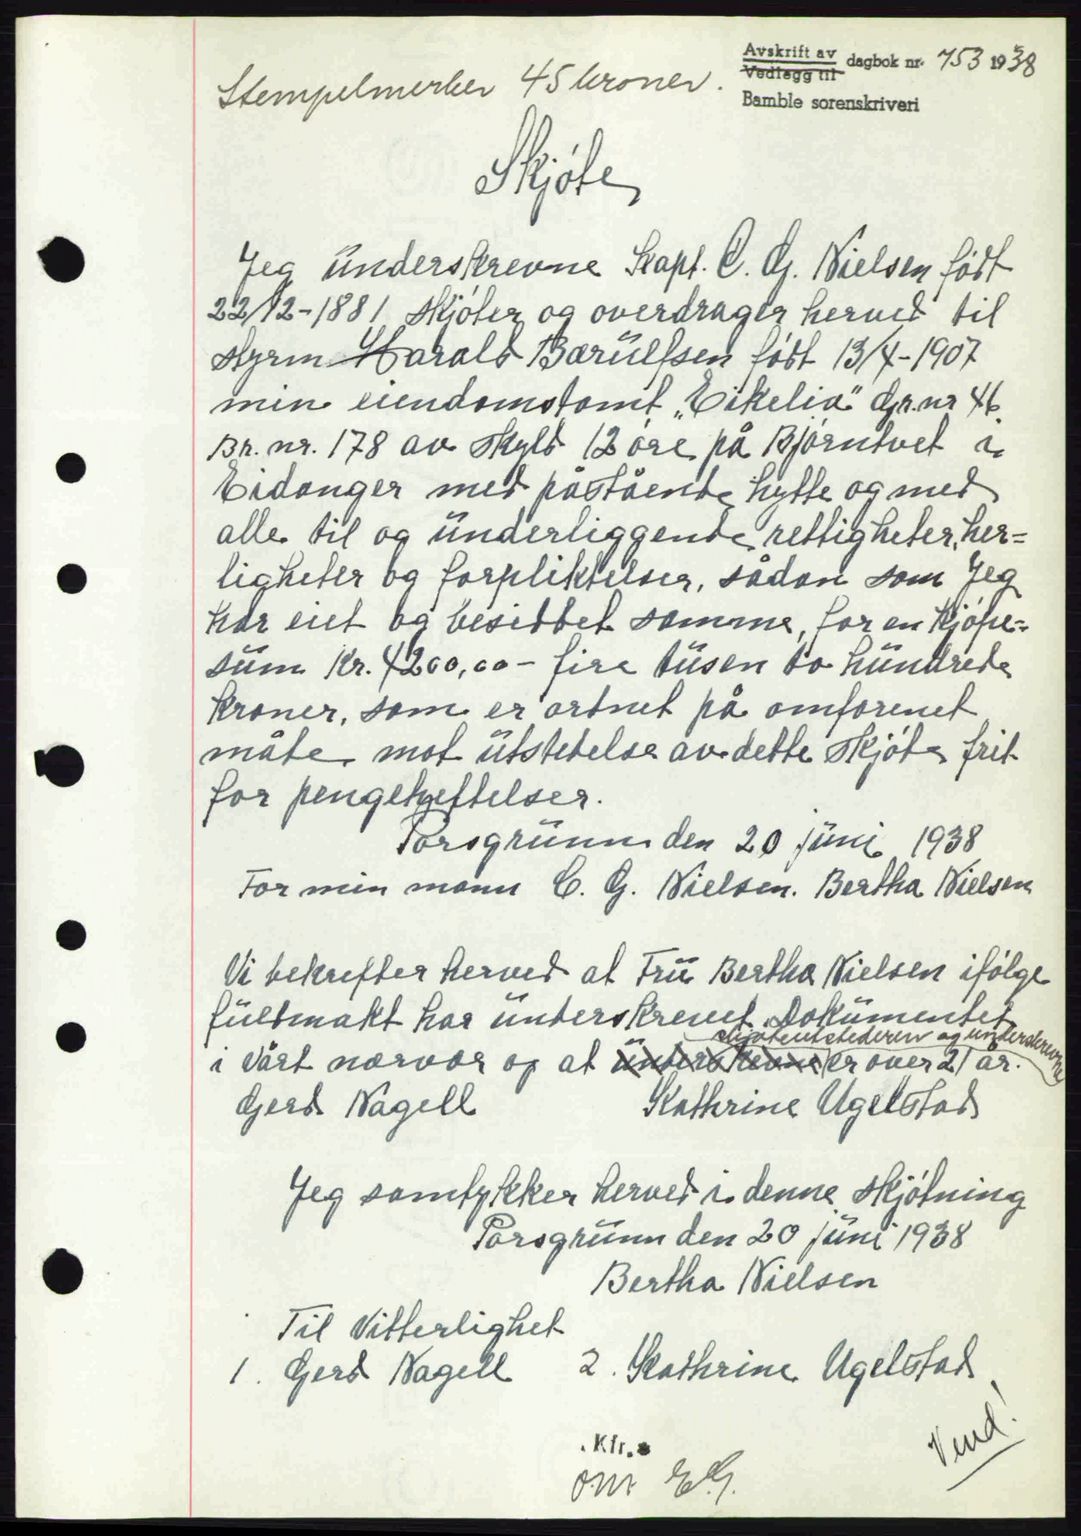 Avskrift av
Vedlegg til
dagbok nr. 753 1938
Bamble sorenskriveri
Stempelmerker 45 kroner.
Skjöte
Jeg underskrevne Kapt. C. G. Nielsen födt
22/12-1881 skjöter og overdrager herved til
styrm Harald Bærulfsen födt 13/4-1907
min eiendomstomt „Eikelia" Gr.nr 46
Br. nr. 178 av skyld 12 öre på Björntvet i
Eidanger med påstående hytte og med
alle til og underliggende rettigheter, her=
ligheter og forpliktelser, sådan som Jeg
har eiet og besittet samme, for en kjöpe=
sum Kr. 4200,00 - fire tusen to hundrede
kroner, som er ordnet på omforenet
måte mot utstedelse av dette skjöte frit
for pengeheftelser.
Porsgrunn den 20 juni 1938
For min mann C. G. Nielsen. Bertha Nielsen
Vi bekrefter herved at Fru Bertha Nielsen ifölge
fuldmakt har underskrevet Dokumentet
skjöteutstederen og underskrevne
i vårt nærvær og at underskrevne er over 21 år.
Gerd Nagell Kathrine Ugelstad
Jeg samtykker herved i denne skjötning
Porsgrunn den 20 juni 1938
Bertha Nielsen
Til Vitterlighet
1. Gerd Nagell 2. Kathrine Ugelstad
Vend!
Kfr.
om E.G.